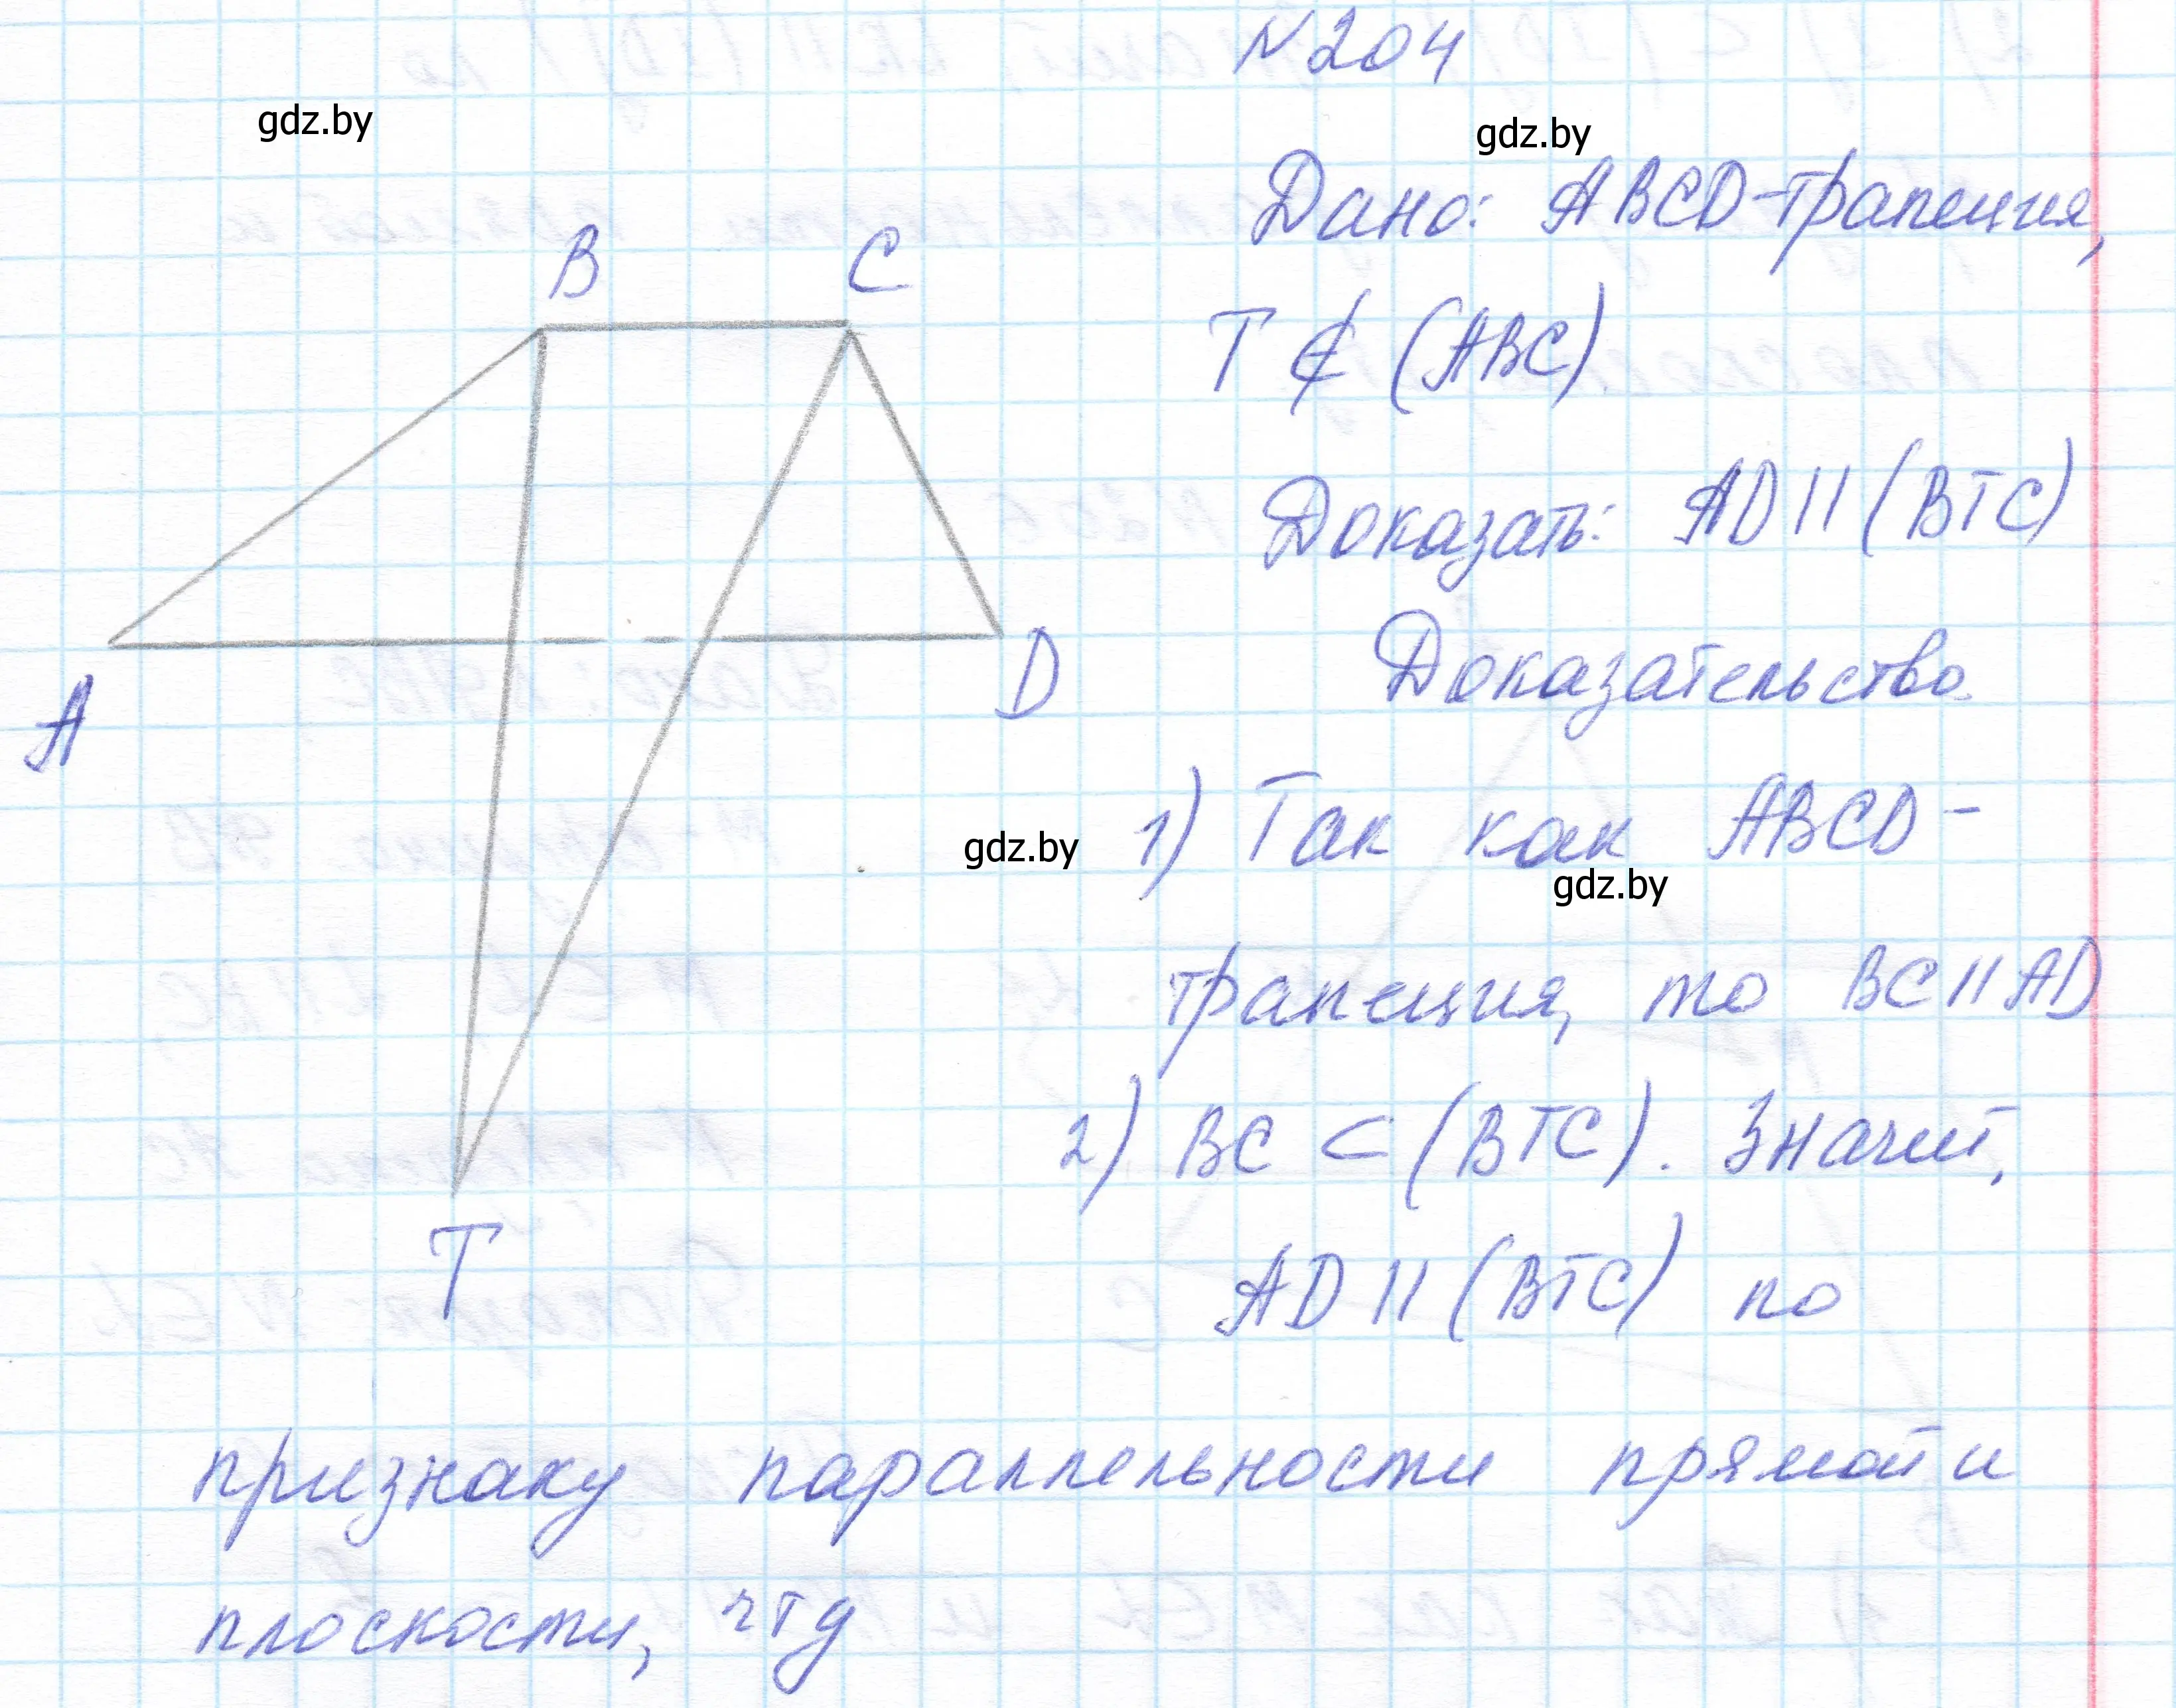 N204
gdz.by
gdz.by
Дано: ABCD-трапеция,
B C
T ∉ (ABC)
Доказать: AD || (BTC)
Доказательство
A D
1) Так как ABCD-
gdz.by
gdz.by
трапеция, то BC || AD
2) BC ⊂ (BTC). Значит,
T
AD || (BTC) по
признаку параллельности прямой и
плоскости, чтд